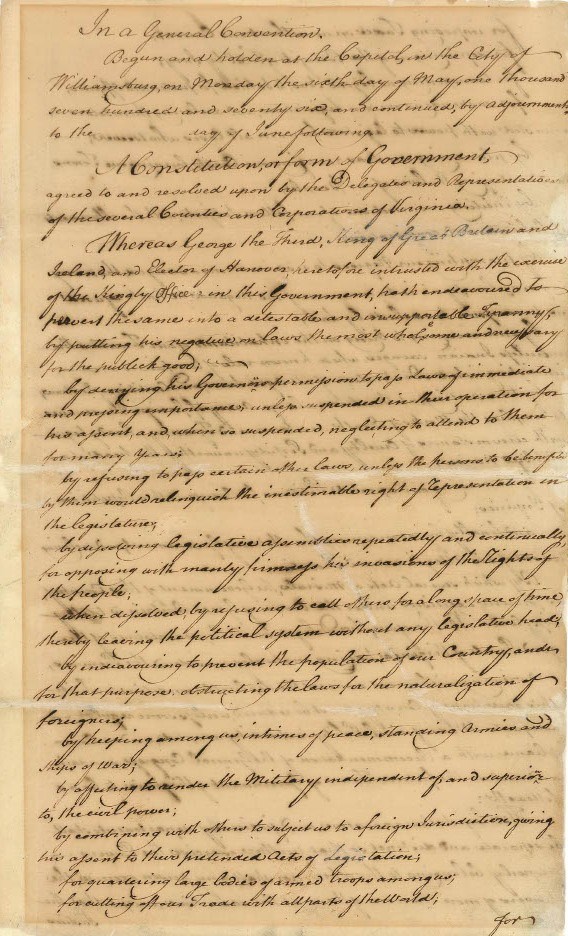 In a General Convention.
Begun and holden at the Capitol, in the City of
Williamsburg, on Monday the sixth day of May, one thousand
seven hundred and seventy six, and continued, by adjournments
to the day of June following.
A Constitution, or form of Government,
agreed to and resolved upon by the Delegates and Representatives
of the several Counties and Corporations of Virginia.
Whereas George the Third, King of Great Britain and
Ireland, and Elector of Hanover, heretofore intrusted with the exercise
of the Kingly Office in this Government, hath endeavoured to
pervert the same into a detestable and insupportable Tyranny;
by putting his negative on laws the most wholesome and necessary
for the publick good;
by denying his Governors permission to pass Laws of immediate
and pressing importance, unless suspended in their operation for
his assent, and, when so suspended, neglecting to attend to them
for many Years;
by refusing to pass certain other laws, unless the persons to be benefited
by them would relinquish the inestimable right of representation in
the legislature;
by dissolving legislative assemblies repeatedly and continually,
for opposing with manly firmness his invasions of the Rights of
the people;
when dissolved, by refusing to call others for a long space of time,
thereby leaving the political system without any legislative head;
by endeavouring to prevent the population of our Country, and,
for that purpose, obstructing the laws for the naturalization of
foreigners;
by keeping among us, in times of peace, standing Armies and
Ships of War;
by affecting to render the Military independent of, and superior
to, the civil power;
by combining with others to subject us to a foreign Jurisdiction, giving
his assent to their pretended Acts of Legislation;
for quartering large bodies of armed troops among us;
for cutting off our Trade with all parts of the World;
for